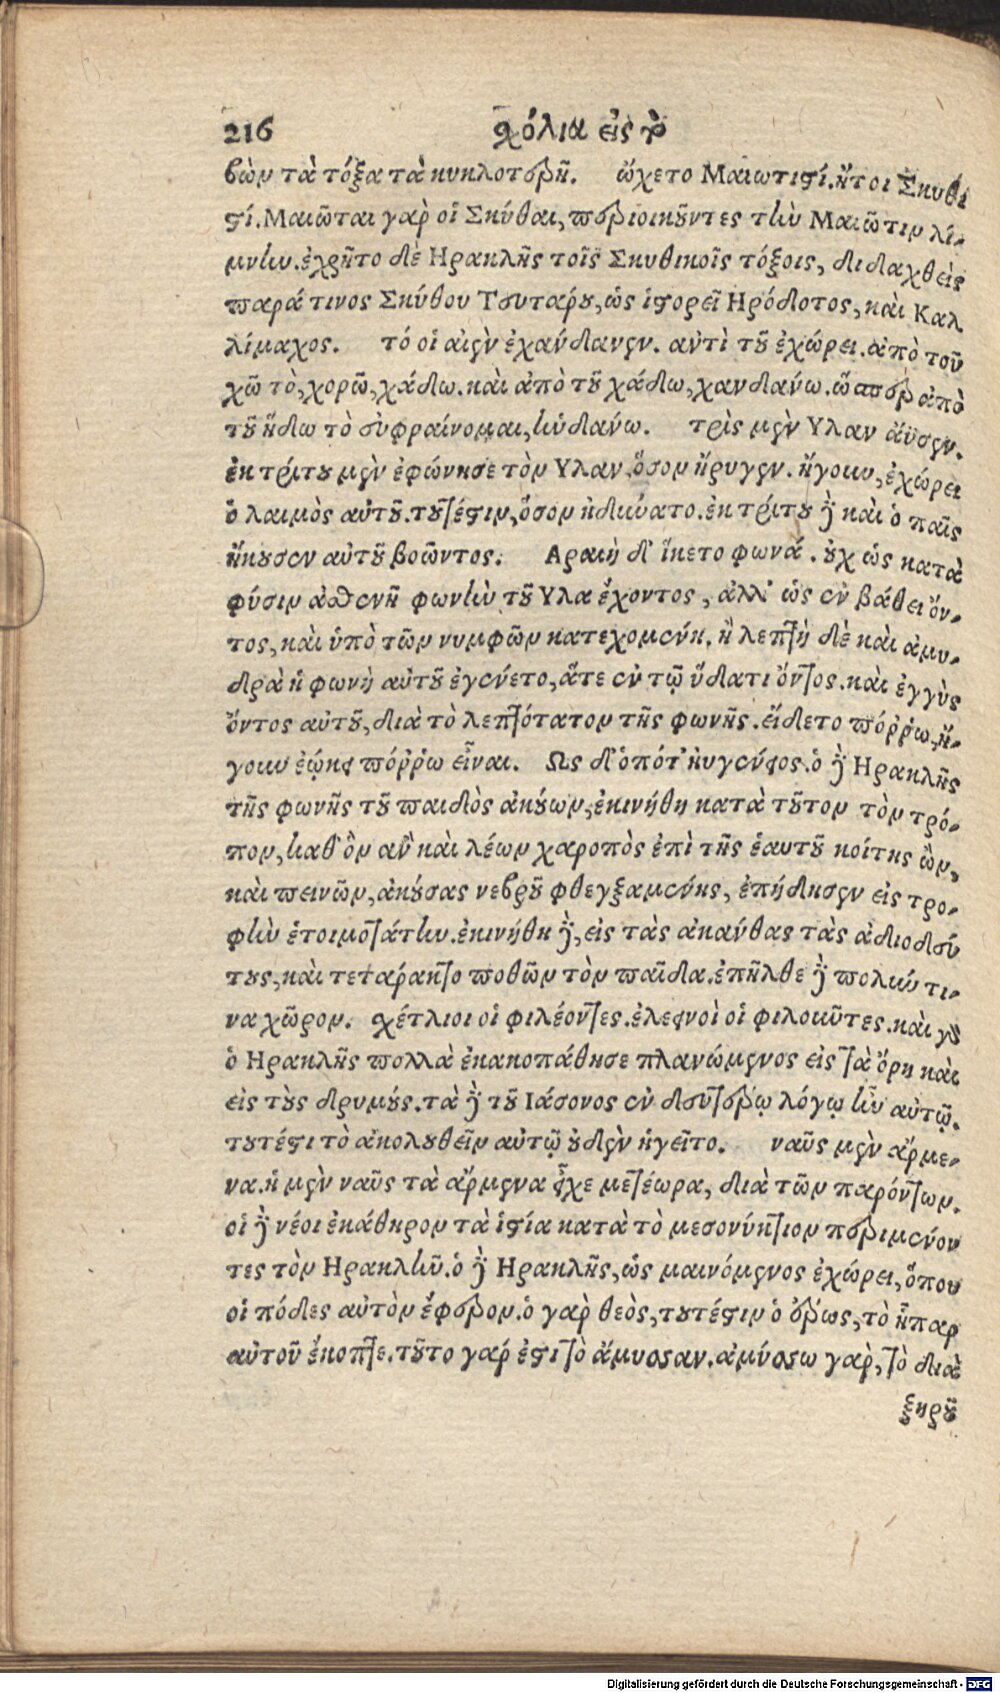 216 σχόλια εἰς τὸ
βὼν τὰ τόξα τὰ κυκλοτερῆ. ᾤχετο Μαιωτιστί. ἤτοι Σκυθι
στί. Μαιῶται γὰρ οἱ Σκύθαι, περιοικοῦντες τὴν Μαιῶτιν λί-
μνην. ἐχρῆτο δὲ Ηρακλῆς τοῖς Σκυθικοῖς τόξοις, διδαχθεὶς
παρά τινος Σκύθου Τευταρου, ὡς ἱστορεῖ Ηρόδοτος, καὶ Καλ
λίμαχος. τό οἱ αἰὲν ἐχάνδανεν. αντὶ τοῦ ἐχώρει. ἀπὸ τοῦ
χῶ τὸ, χορῶ, χάδω. καὶ ἀπὸ τοῦ χάδω, χανδανω. ὥσπερ ἀπὸ
τοῦ ἥδω τὸ εὐφραίνομαι, ἡνδανω. τρὶς μὲν Υλαν ἄϋσεν.
ἐκ τρίτου μὲν ἐφώνησε τὸν Υλαν, ὅσον ἤρυγεν. ἤγουν, ἐχώρει
ὁ λαιμὸς αὐτοῦ. τουτέστιν, ὅσον ἠδύνατο. ἐκ τρίτου δὲ καὶ ὁ παῖς
ἤκουσεν αὐτοῦ βοῶντος. Αραιὴ δ' ἵκετο φωνά. οὐχ ὡς κατὰ
φύσιν ἀσθενῆ φωνὴν τοῦ Υλα ἔχοντος, ἀλλ' ὡς ἐν βάθει ὄν-
τος, καὶ ὑπὸ τῶν νυμφῶν κατεχομένη. ἢ λεπτὴ δὲ καὶ ἀμυ-
δρὰ ἡ φωνὴ αὐτοῦ ἐγένετο, ἅτε ἐν τῷ ὕδατι ὄντος. καὶ ἐγγὺς
ὄντος αὐτοῦ, διὰ τὸ λεπτότατον τῆς φωνῆς. εἴδετο πόῤῥω, ἤ-
γουν ἐῴκει πόῤῥω εἶναι. Ως δ' ὁπότ' ἠυγένειος. ὁ δὲ Ηρακλῆς
τῆς φωνῆς τοῦ παιδὸς ἀκούων, ἐκινήθη κατὰ τοῦτον τὸν τρό-
πον, καθ' ὃν ἂν καὶ λέων χαροπὸς ἐπὶ τῆς ἑαυτοῦ κοίτης ὢν,
καὶ πεινῶν, ἀκούσας νεβροῦ φθεγξαμένης, ἐπήδησεν εἰς τρο-
φὴν ἑτοιμοτάτην. ἐκινήθη δὲ, εἰς τὰς ἀκάνθας τὰς ἀδιοδεύ
τους, καὶ τετάρακτο ποθῶν τὸν παῖδα. ἐπῆλθε δὲ πολύν τι-
να χῶρον. σχέτλιοι οἱ φιλέοντες. ἐλεεινοὶ οἱ φιλοῦντες. καὶ γὰρ
ὁ Ηρακλῆς πολλὰ ἐκακοπάθησε πλανώμενος εἰς τὰ ὄρη καὶ
εἰς τοὺς δρυμούς. τὰ δὲ τοῦ Ιάσονος ἐν δευτέρῳ λόγῳ ἦν αὐτῷ.
τουτέστι τὸ ἀκολουθεῖν αὐτῷ οὐδὲν ἡγεῖτο. ναῦς μὲν ἄρμε-
να. ἡ μὲν ναῦς τὰ ἄρμενα εἶχε μετέωρα, διὰ τῶν παρόντων.
οἱ δὲ νέοι ἐκάθηρον τὰ ἱστία κατὰ τὸ μεσονύκτιον περιμένον
τες τὸν Ηρακλῆν. ὁ δὲ Ηρακλῆς, ὡς μαινόμενος ἐχώρει, ὅπου
οἱ πόδες αὐτὸν ἔφερον. ὁ γὰρ θεὸς, τουτέστιν ὁ ἔρως, τὸ ἧπαρ
αὐτοῦ ἔκοπτε. τοῦτο γάρ ἐστι τὸ ἄμυσσαν. ἀμύσσω γὰρ, τὸ διὰ
ξηροῦ